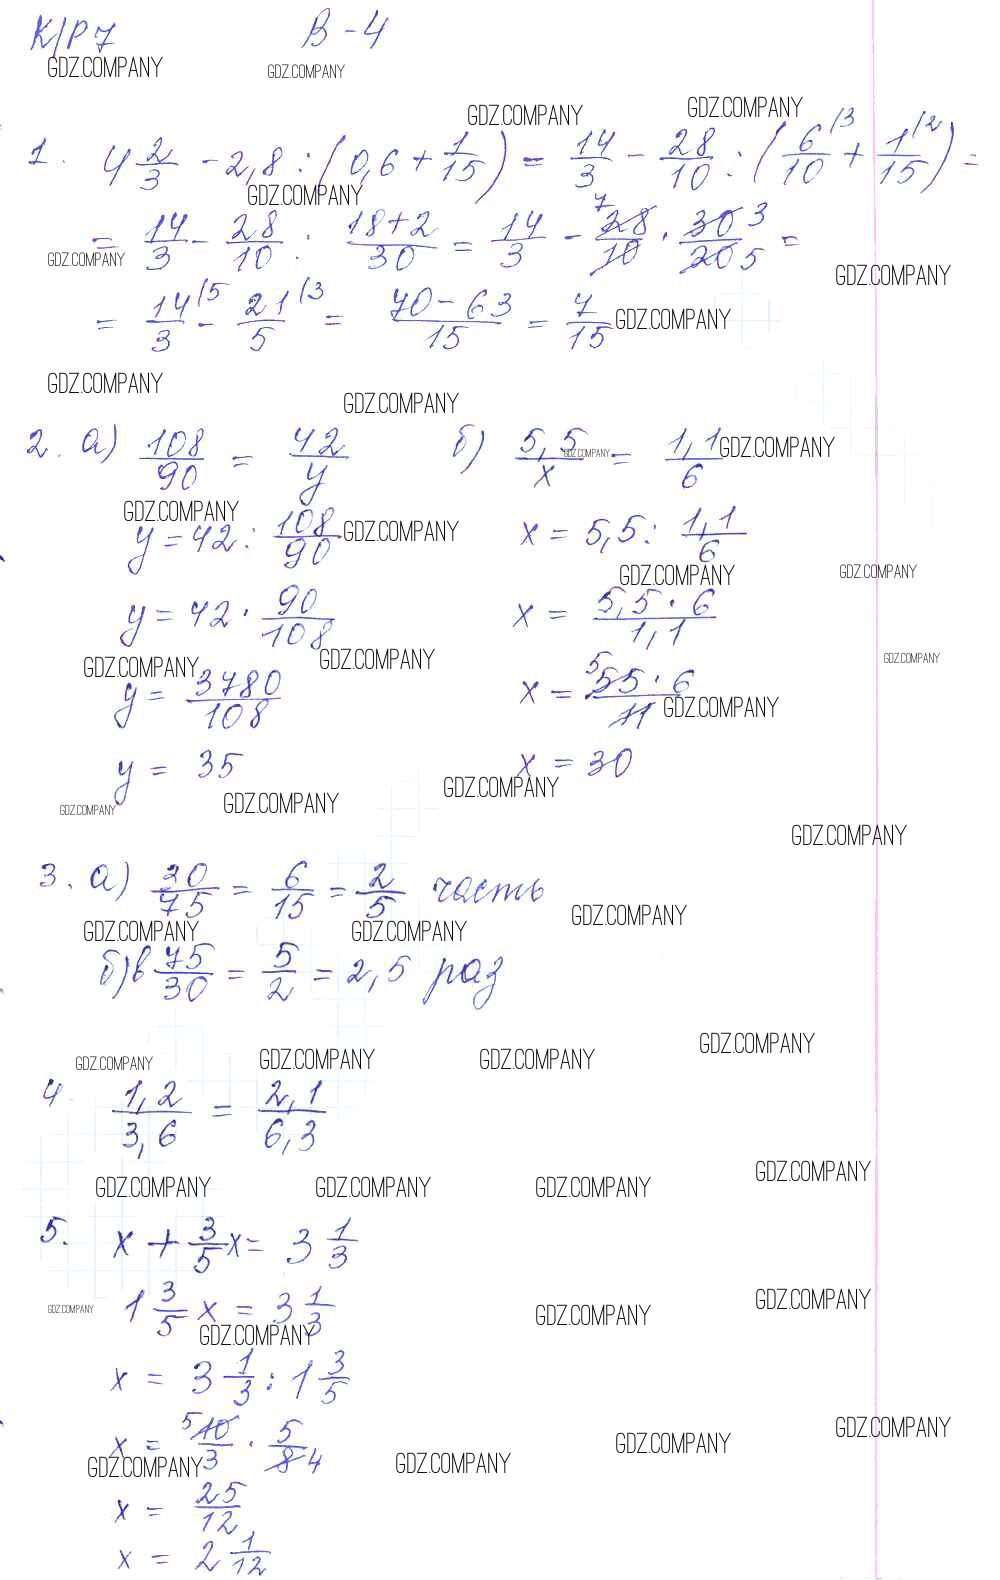 К/Р 7 В-4
GDZ.COMPANY GDZ.COMPANY
GDZ.COMPANY GDZ.COMPANY
1. 4 2/3 - 2,8 : (0,6 + 1/15) = 14/3 - 28/10 : (6/10 /3 + 1/15 /2) =
GDZ.COMPANY
= 14/3 - 28/10 : 18+2/30 = 14/3 - 7 28/10 · 30 3/20 5 =
GDZ.COMPANY GDZ.COMPANY
= 14/3 /5 - 21/5 /3 = 70-63/15 = 7/15 GDZ.COMPANY
GDZ.COMPANY GDZ.COMPANY
2. а) 108/90 = 42/y б) 5,5/x = 1,1/6
GDZ.COMPANY GDZ.COMPANY
GDZ.COMPANY GDZ.COMPANY
y = 42 : 108/90 x = 5,5 : 1,1/6
GDZ.COMPANY GDZ.COMPANY
y = 42 · 90/108 x = 5,5 · 6/1,1
GDZ.COMPANY GDZ.COMPANY GDZ.COMPANY
y = 3780/108 x = 5 55 · 6/11
GDZ.COMPANY
y = 35 x = 30
GDZ.COMPANY GDZ.COMPANY GDZ.COMPANY
GDZ.COMPANY
3. а) 30/75 = 6/15 = 2/5 часть
GDZ.COMPANY
GDZ.COMPANY GDZ.COMPANY
б) в 75/30 = 5/2 = 2,5 раз
GDZ.COMPANY GDZ.COMPANY GDZ.COMPANY GDZ.COMPANY
4. 1,2/3,6 = 2,1/6,3
GDZ.COMPANY GDZ.COMPANY GDZ.COMPANY GDZ.COMPANY
5. x + 3/5 x = 3 1/3
1 3/5 x = 3 1/3
GDZ.COMPANY GDZ.COMPANY GDZ.COMPANY
GDZ.COMPANY
x = 3 1/3 : 1 3/5
x = 5 10/3 · 5/8 4
GDZ.COMPANY GDZ.COMPANY GDZ.COMPANY GDZ.COMPANY
x = 25/12
x = 2 1/12